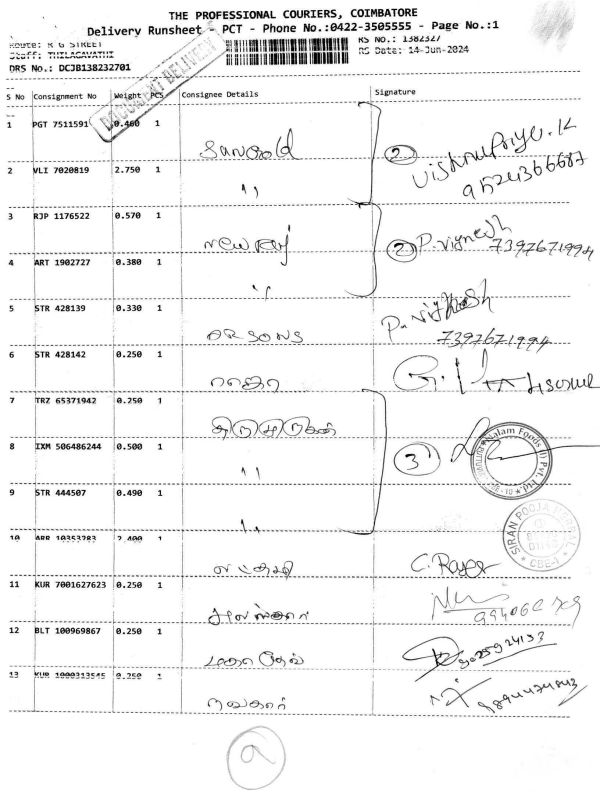 THE PROFESSIONAL COURIERS, COIMBATORE
Delivery Runsheet - PCT - Phone No.:0422-3505555 - Page No.:1
Route: R G STREET
RS No.: 1382327
Staff: THILAGAVATHI
RS Date: 14-Jun-2024
DRS No.: DCJB138232701
DOCUMENT DELIVERY
S No Consignment No Weight PCS Consignee Details Signature
1 PGT 7511591 0.460 1
2 VLI 7020819 2.750 1 ,,
2 Vishnupriya.K
9524366687
3 RJP 1176522 0.570 1 new Ray
2 P. Vignesh
7397671994
4 ART 1902727 0.380 1 ,,
5 STR 428139 0.330 1 ARSONS
P. Vignesh
7397671994
6 STR 428142 0.250 1
7 TRZ 65371942 0.250 1 திருமுருகன்
8 IXM 506486244 0.500 1 ,,
3
Nalam Foods (I) Pvt. Ltd.
9 STR 444507 0.490 1 ,,
10 ARR 10353283 2.400 1
SIRAN POOJA HERBAL
CBE-1
11 KUR 7001627623 0.250 1 அலங்கார்
12 BLT 100969867 0.250 1 மகாதேவ்
9025924153
13 KUR 1000313545 0.250 1 நவகார்
9894474843
a